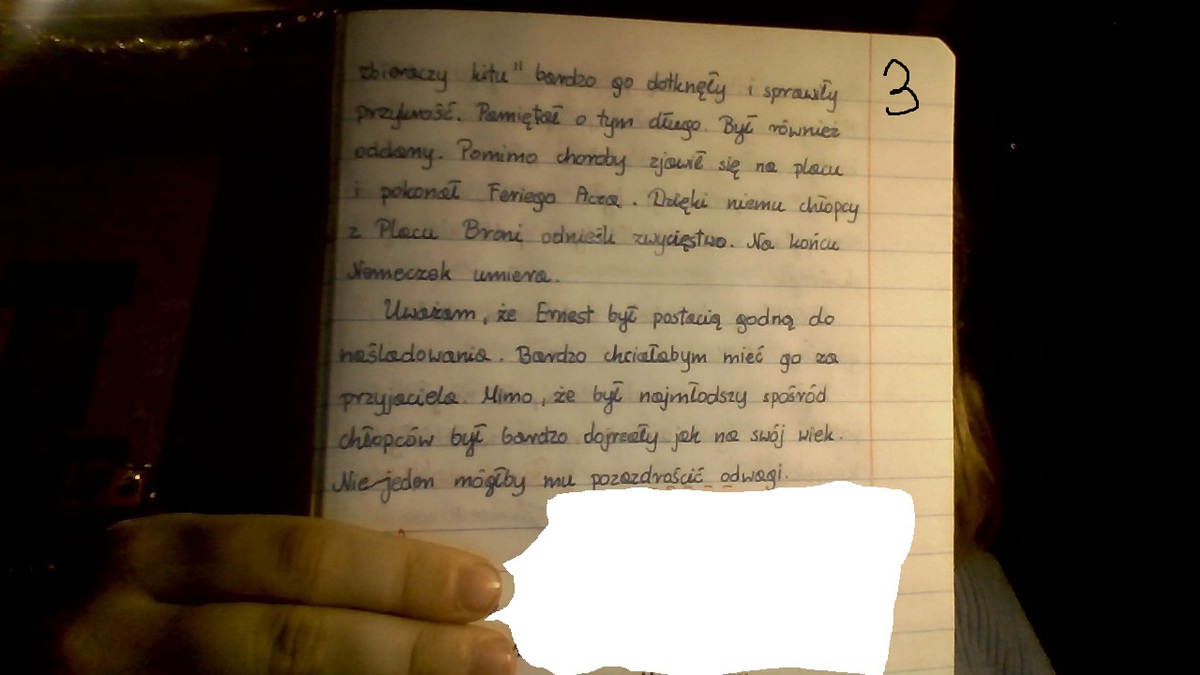 3
zbieraczy kitu" bardzo go dotknęły i sprawiły
przykrość. Pamiętał o tym długo. Był również
oddany. Pomimo choroby zjawił się na placu
i pokonał Feriego Acza. Dzięki niemu chłopcy
z Placu Broni odnieśli zwycięstwo. Na końcu
Nemeczek umiera.
Uważam, że Ernest był postacią godną do
naśladowania. Bardzo chciałabym mieć go za
przyjaciela. Mimo, że był najmłodszy spośród
chłopców był bardzo dojrzały jak na swój wiek.
Nie jeden mógłby mu pozazdrościć odwagi.